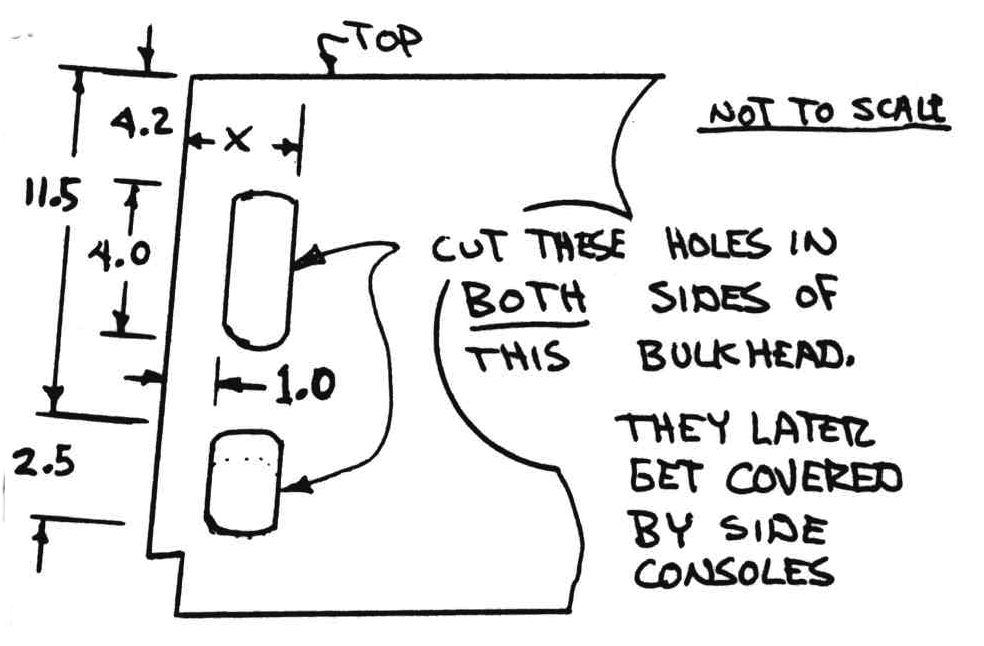 TOP
NOT TO SCALE
4.2
X
11.5
4.0
CUT THESE HOLES IN
BOTH SIDES OF
THIS BULKHEAD.
1.0
THEY LATER
GET COVERED
BY SIDE
CONSOLES
2.5